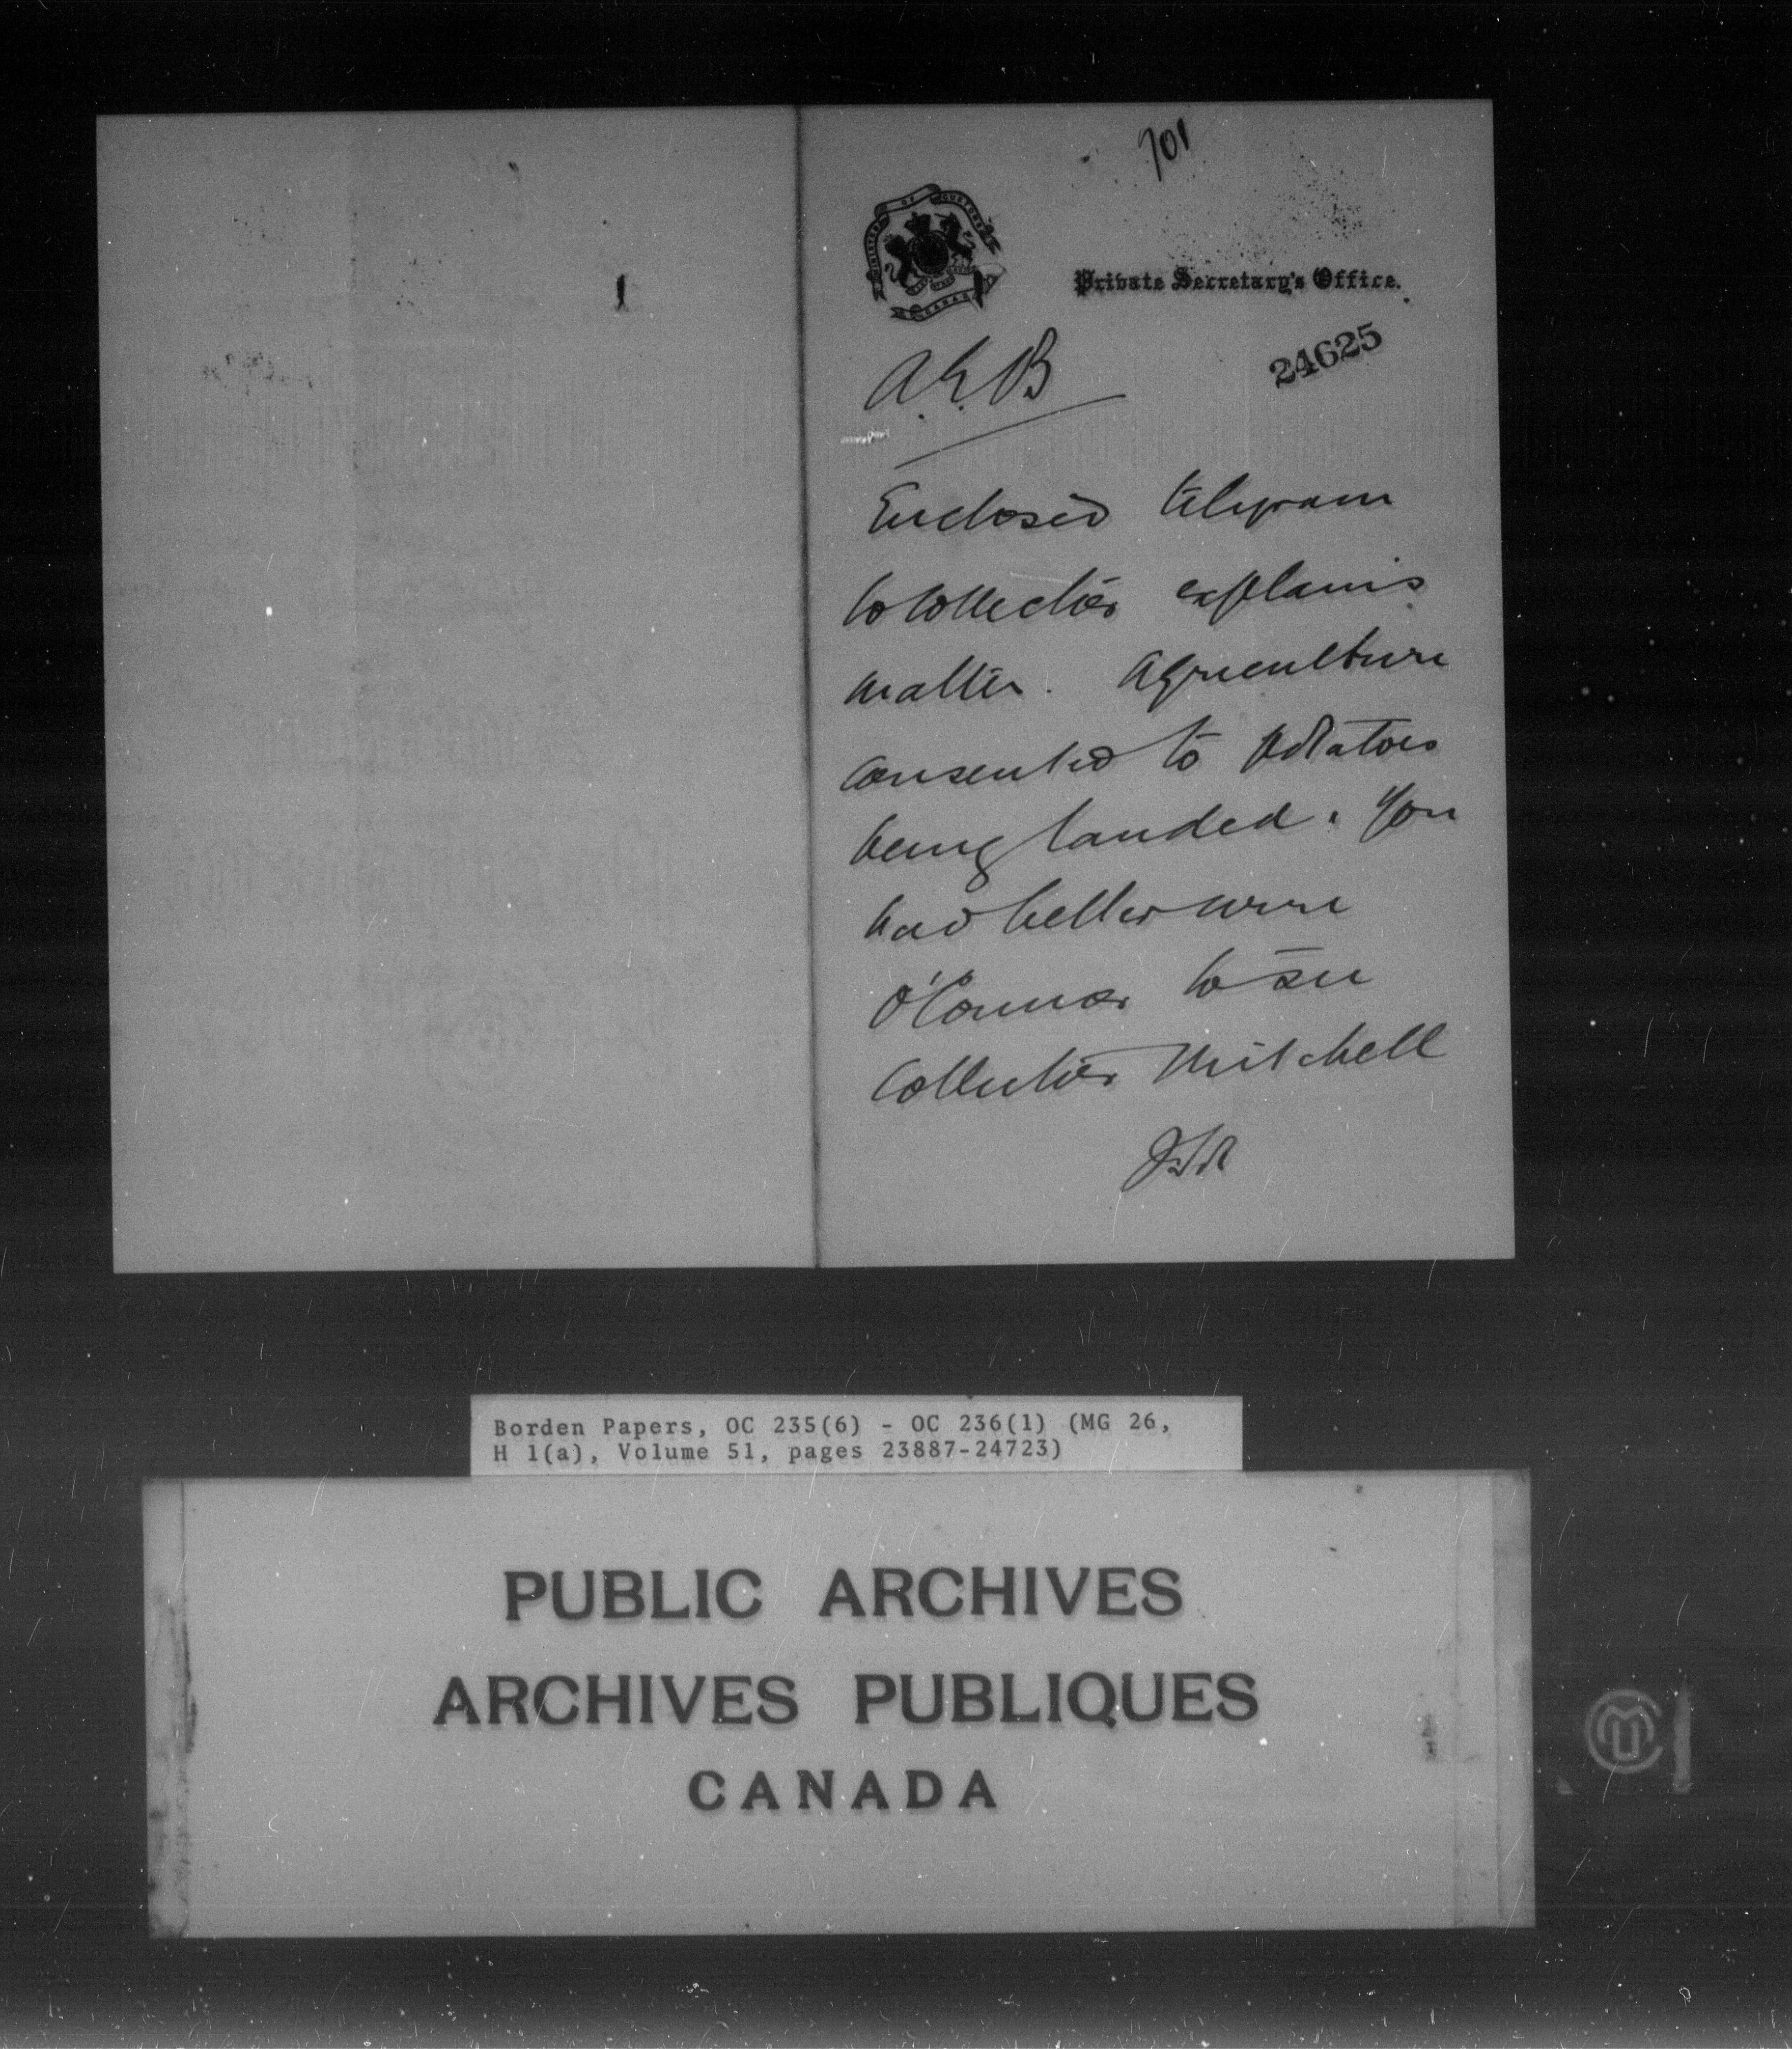 701
MINISTER OF CUSTOMS
CANADA
Private Secretary's Office.
24625
A.E.B
Enclosed telegram
to Collector explains
matter. Agriculture
consented to potatoes
being landed. You
had better wire
O'Connor to see
Collector Mitchell
Borden Papers, OC 235(6) - OC 236(1) (MG 26,
H 1(a), Volume 51, pages 23887-24723)
PUBLIC ARCHIVES
ARCHIVES PUBLIQUES
CANADA